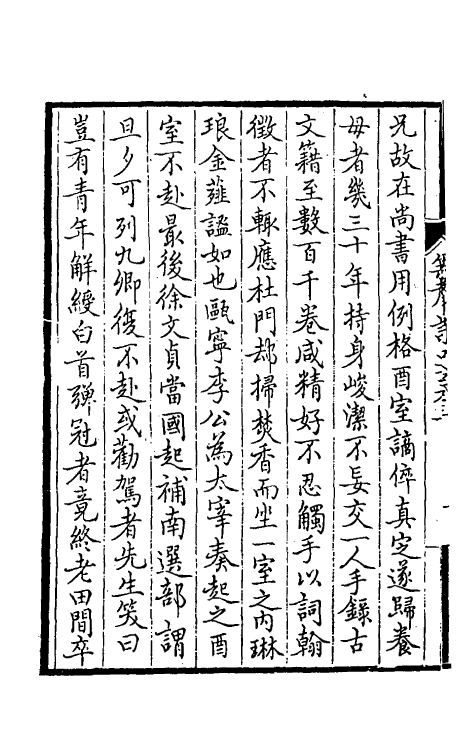 兄故在尚書用例格酉室謫倅真定遂歸養
母者幾三十年持身峻潔不妄交一人手錄古
文籍至數百千卷咸精好不忍觸手以詞翰
徵者不輒應杜門却掃焚香而坐一室之內琳
琅金薤謐如也甌寧李公為太宰奏起之酉
室不赴最後徐文貞當國起補南選部謂
旦夕可列九卿復不赴或勸駕者先生笑曰
豈有青年解綬白首彈冠者竟終老田間卒